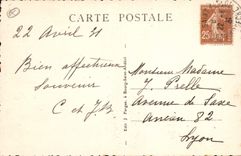 CARTE POSTALE
22 Avril 31
Bien affectueux
Souvenir
C et J B
Monsieur Madame
J. Prelle
Avenue de Saxe
82
Lyon
25